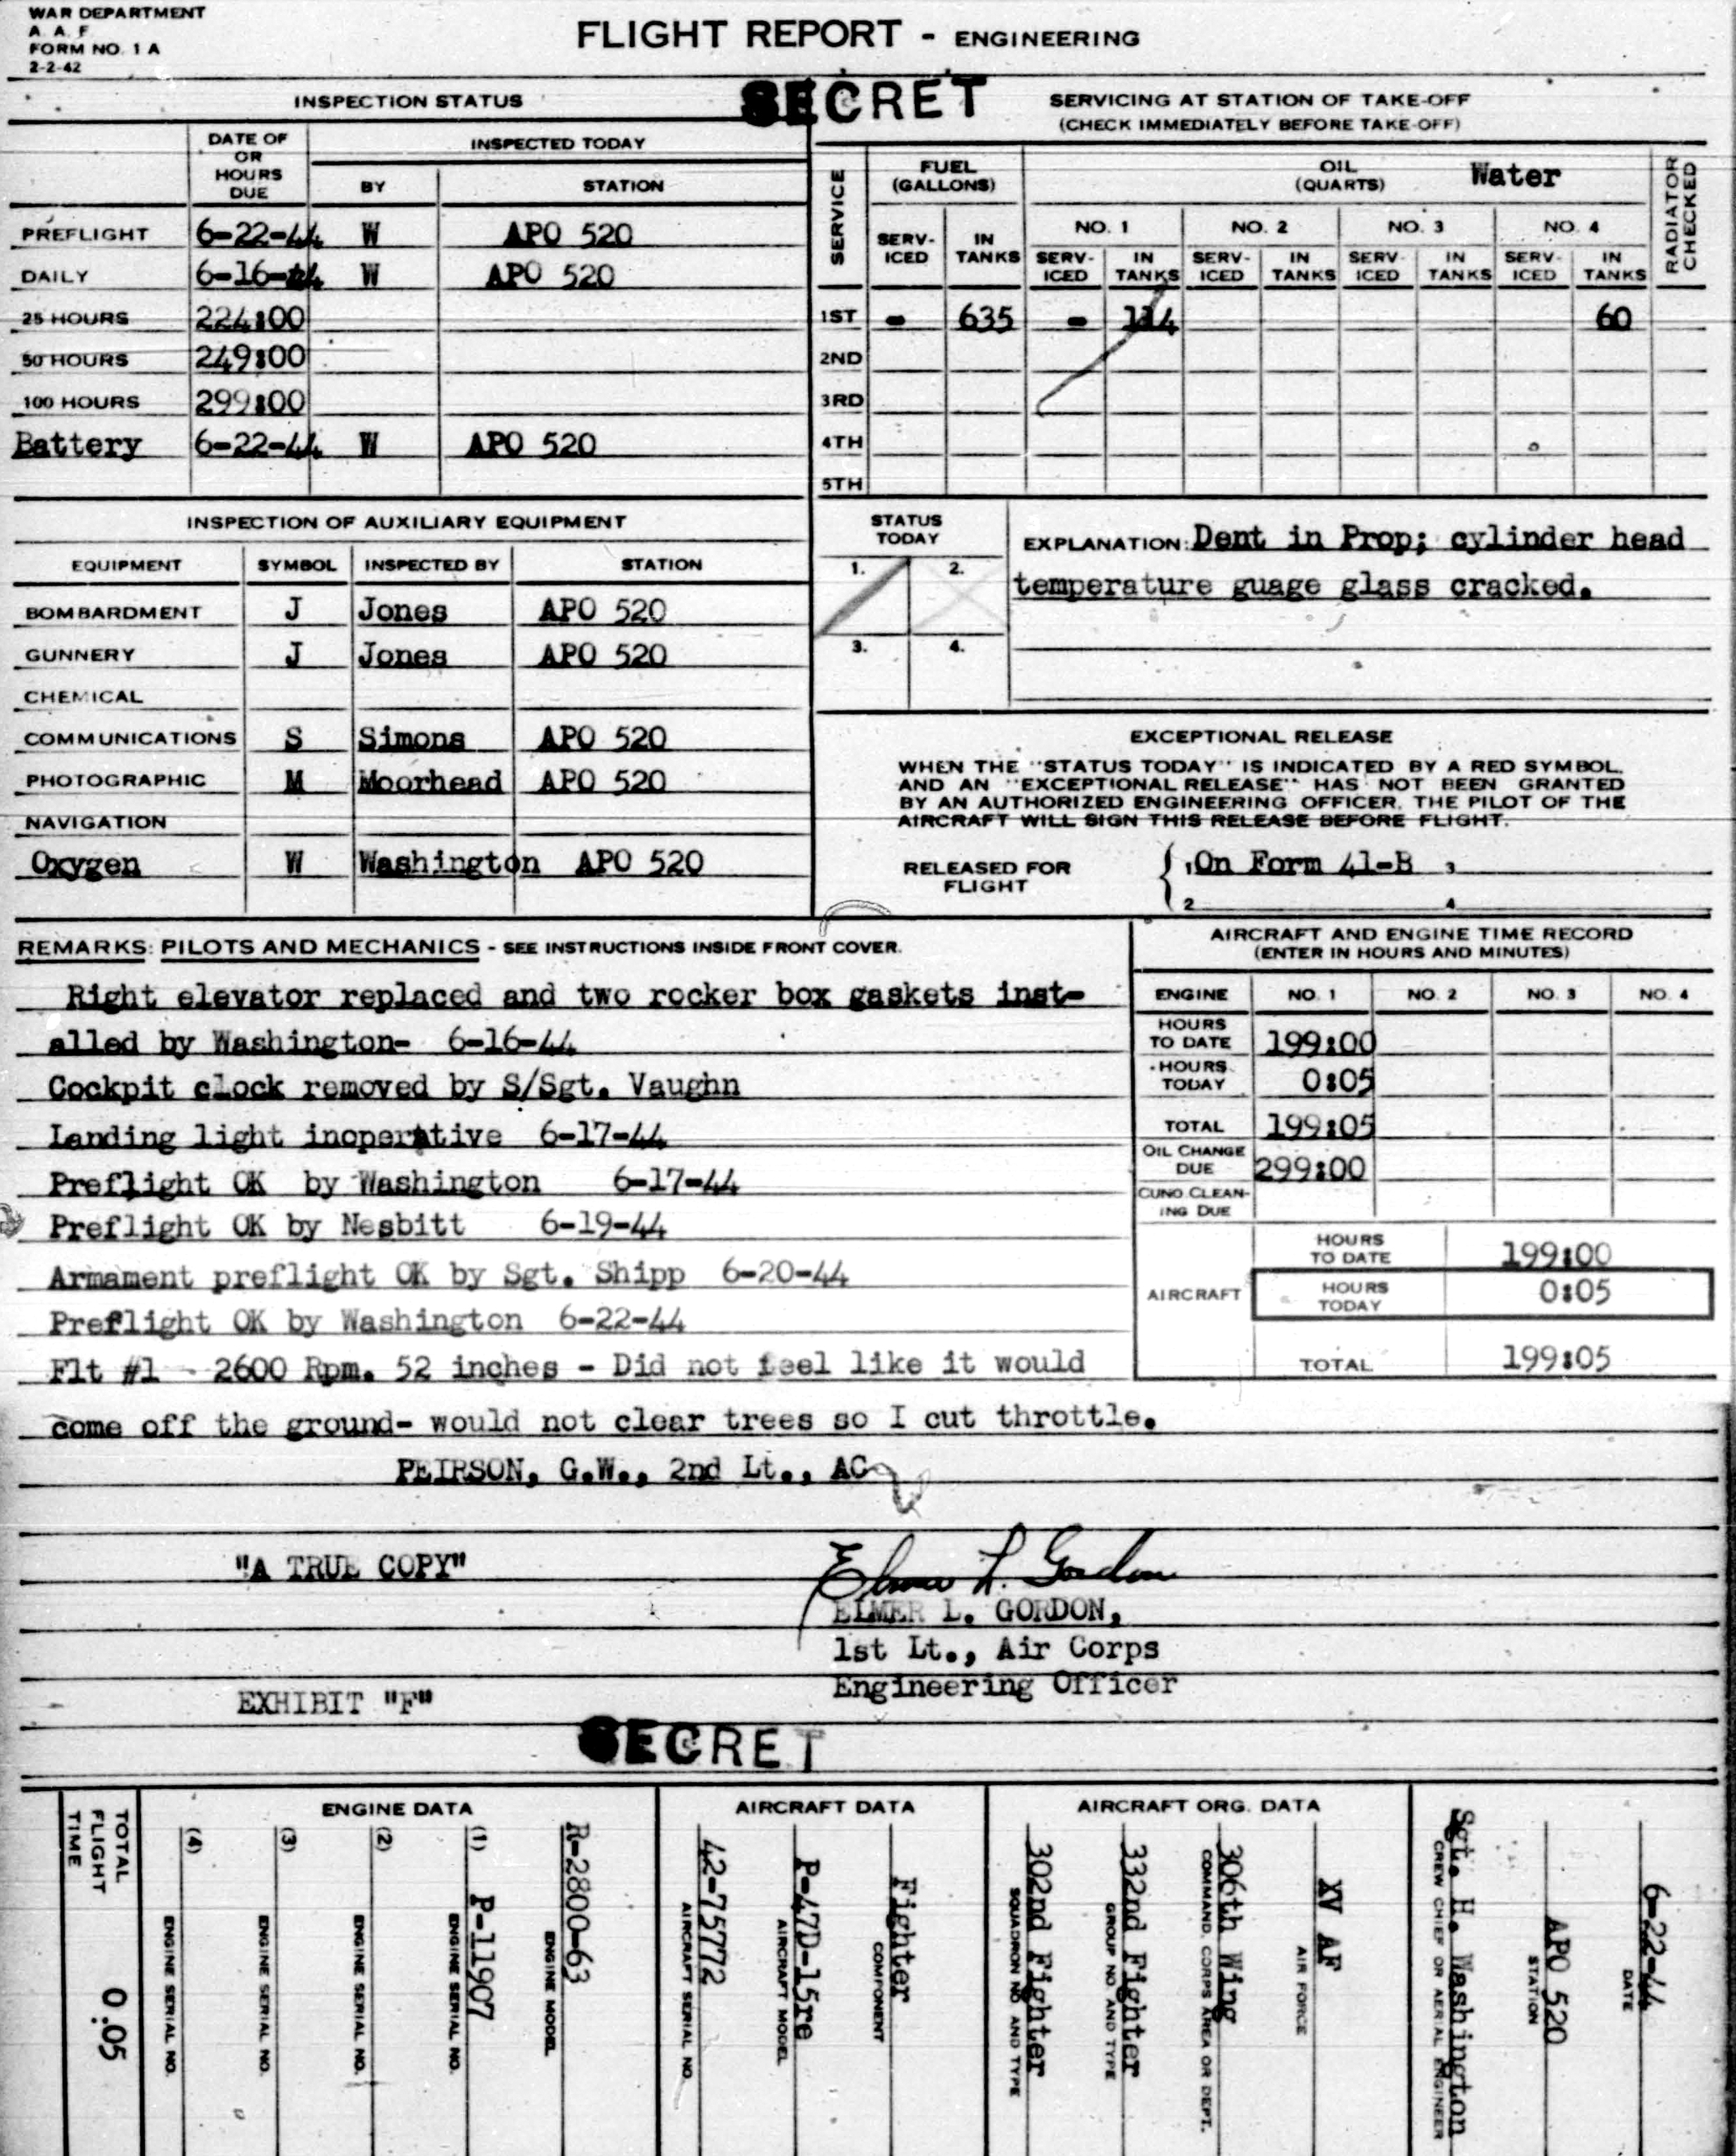 WAR DEPARTMENT
A. A. F
FORM NO. 1 A
2-2-42
FLIGHT REPORT - ENGINEERING
SECRET
INSPECTION STATUS
DATE OF OR HOURS DUE
INSPECTED TODAY
BY STATION
PREFLIGHT 6-22-44 W APO 520
DAILY 6-16-44 W APO 520
25 HOURS 224:00
50 HOURS 249:00
100 HOURS 299:00
Battery 6-22-44 W APO 520
SERVICING AT STATION OF TAKE-OFF
(CHECK IMMEDIATELY BEFORE TAKE-OFF)
SERVICE
FUEL (GALLONS)
OIL (QUARTS)
Water
RADIATOR CHECKED
NO. 1 NO. 2 NO. 3 NO. 4
SERV-ICED IN TANKS SERV-ICED IN TANKS SERV-ICED IN TANKS SERV-ICED IN TANKS SERV-ICED IN TANKS
1ST - 635 - 114 60
2ND
3RD
4TH
5TH
INSPECTION OF AUXILIARY EQUIPMENT
EQUIPMENT SYMBOL INSPECTED BY STATION
BOMBARDMENT J Jones APO 520
GUNNERY J Jones APO 520
CHEMICAL
COMMUNICATIONS S Simons APO 520
PHOTOGRAPHIC M Moorhead APO 520
NAVIGATION
Oxygen W Washington APO 520
STATUS TODAY
1. 2.
3. 4.
EXPLANATION: Dent in Prop; cylinder head
temperature guage glass cracked.
EXCEPTIONAL RELEASE
WHEN THE "STATUS TODAY" IS INDICATED BY A RED SYMBOL.
AND AN "EXCEPTIONAL RELEASE" HAS NOT BEEN GRANTED
BY AN AUTHORIZED ENGINEERING OFFICER, THE PILOT OF THE
AIRCRAFT WILL SIGN THIS RELEASE BEFORE FLIGHT.
RELEASED FOR FLIGHT
1 On Form 41-B 3
2 4
REMARKS: PILOTS AND MECHANICS - SEE INSTRUCTIONS INSIDE FRONT COVER.
Right elevator replaced and two rocker box gaskets inst-
alled by Washington- 6-16-44
Cockpit clock removed by S/Sgt. Vaughn
Landing light inoperative 6-17-44
Preflight OK by Washington 6-17-44
Preflight OK by Nesbitt 6-19-44
Armament preflight OK by Sgt. Shipp 6-20-44
Preflight OK by Washington 6-22-44
Flt #1 - 2600 Rpm. 52 inches - Did not feel like it would
come off the ground- would not clear trees so I cut throttle.
PEIRSON, G.W., 2nd Lt., AC
AIRCRAFT AND ENGINE TIME RECORD
(ENTER IN HOURS AND MINUTES)
ENGINE NO. 1 NO. 2 NO. 3 NO. 4
HOURS TO DATE 199:00
HOURS TODAY 0:05
TOTAL 199:05
OIL CHANGE DUE 299:00
CUNO CLEAN-ING DUE
AIRCRAFT
HOURS TO DATE 199:00
HOURS TODAY 0:05
TOTAL 199:05
"A TRUE COPY"
Elmer L. Gordon
ELMER L. GORDON,
1st Lt., Air Corps
Engineering Officer
EXHIBIT "F"
SECRET
TOTAL FLIGHT TIME 0:05
ENGINE DATA
(4) ENGINE SERIAL NO.
(3) ENGINE SERIAL NO.
(2) ENGINE SERIAL NO.
(1) P-11907 ENGINE SERIAL NO.
R-2800-63 ENGINE MODEL
AIRCRAFT DATA
42-75772 AIRCRAFT SERIAL NO.
P-47D-15re AIRCRAFT MODEL
Fighter COMPONENT
AIRCRAFT ORG. DATA
302nd Fighter SQUADRON NO. AND TYPE
332nd Fighter GROUP NO. AND TYPE
306th Wing COMMAND, CORPS AREA OR DEPT.
XV AF AIR FORCE
Sgt. H. Washington CREW CHIEF OR AERIAL ENGINEER
APO 520 STATION
6-22-44 DATE